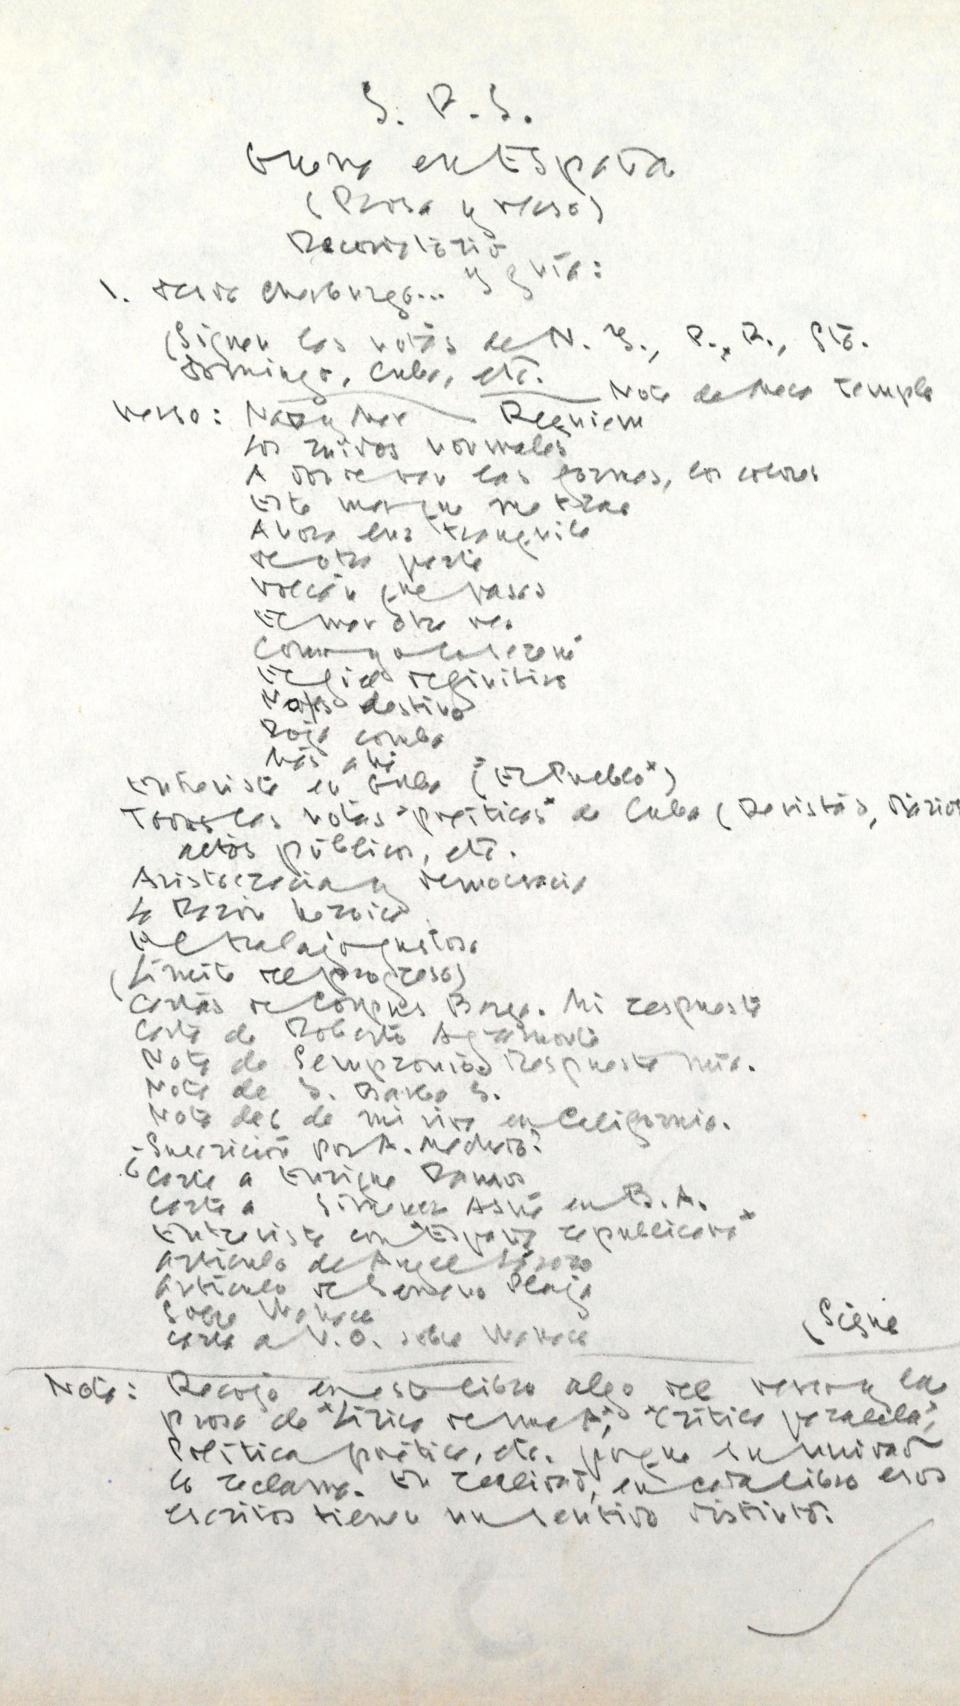 S. R. S.
Guerra en España
(Prosa y verso)
Recordatorio
y guía:
1. Desde Cherburgo...
(Siguen las notas de N. Y., P. R., Sto.
Domingo, Cuba, etc.
Nota de Temple
Verso: Requiem
Los ruidos normales
A devorar las formas, los colores
Este mar que me trae
Ahora luz tranquila
De otra parte
Volcán que pasas
El mar otra vez
Como yo
definitivo
destino
Roja comba
Más allá
Entrevista en Cuba ("El Pueblo")
Todas las notas "políticas" de Cuba (Revistas, Diarios
actos públicos, etc.
Aristocracia y democracia
La Razón heroica
El trabajo gustoso
(Límite del progreso)
Cartas de Corpus Barga. Mi respuesta
Carta de Roberto Agramonte
Nota de Sempronio Respuesta mía.
Nota de J. Bares G.
Nota de mi vida en California.
¿Suscrición por A. Machado?
Carta a Enrique Ramos
Carta a Jiménez Asúa en B. A.
Entrevista con "España republicana"
Artículo de Angel Lázaro
Artículo de Serrano Plaja
Sobre Wallace
Carta a V. O. sobre Wallace
(Sigue
Nota: Recojo en este libro algo del verso y la
prosa de "Lírica de una A", "Crítica paralela",
Política poética, etc. porque su unidad
lo reclama. En realidad, en cada libro esos
escritos tienen un sentido distinto.